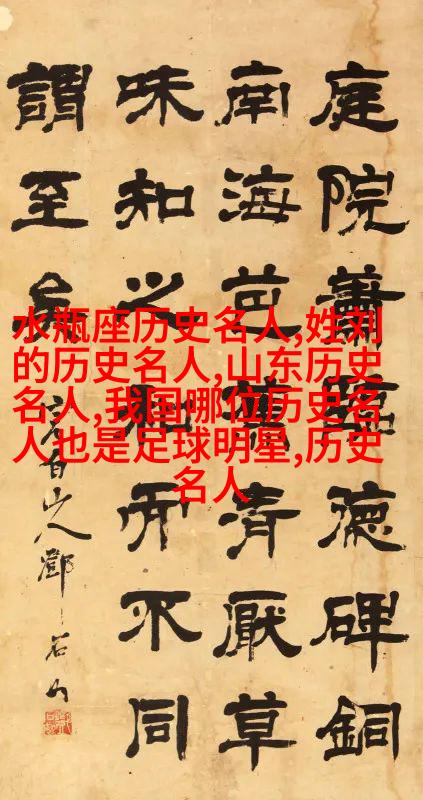 水瓶座历史名人,姓刘
的历史名人,山东历史
名人,我国哪位历史名
人也是足球明星,历史
名人
庭院蕭德碑銅
南海芭清厭草
味知之和而不同
謂至矣
完白山人鄧石如